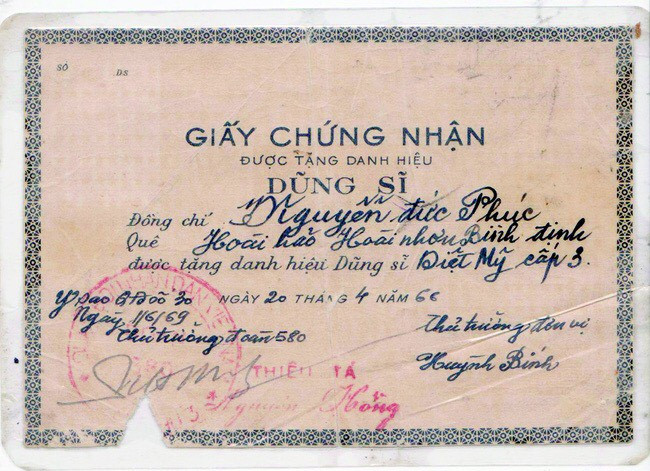 SỐ DS
GIẤY CHỨNG NHẬN
ĐƯỢC TẶNG DANH HIỆU
DŨNG SĨ
Đồng chí Nguyễn đức Phúc
Quê Hoài hảo Hoài nhơn Bình định
được tặng danh hiệu Dũng sĩ Diệt Mỹ cấp 3.
NGÀY 20 THÁNG 4 NĂM 66
Y sao
Ngày 1/6/69
Thủ trưởng đoàn 580
Thủ trưởng đơn vị
Huỳnh Bính
THIẾU TÁ
Nguyễn Hồng